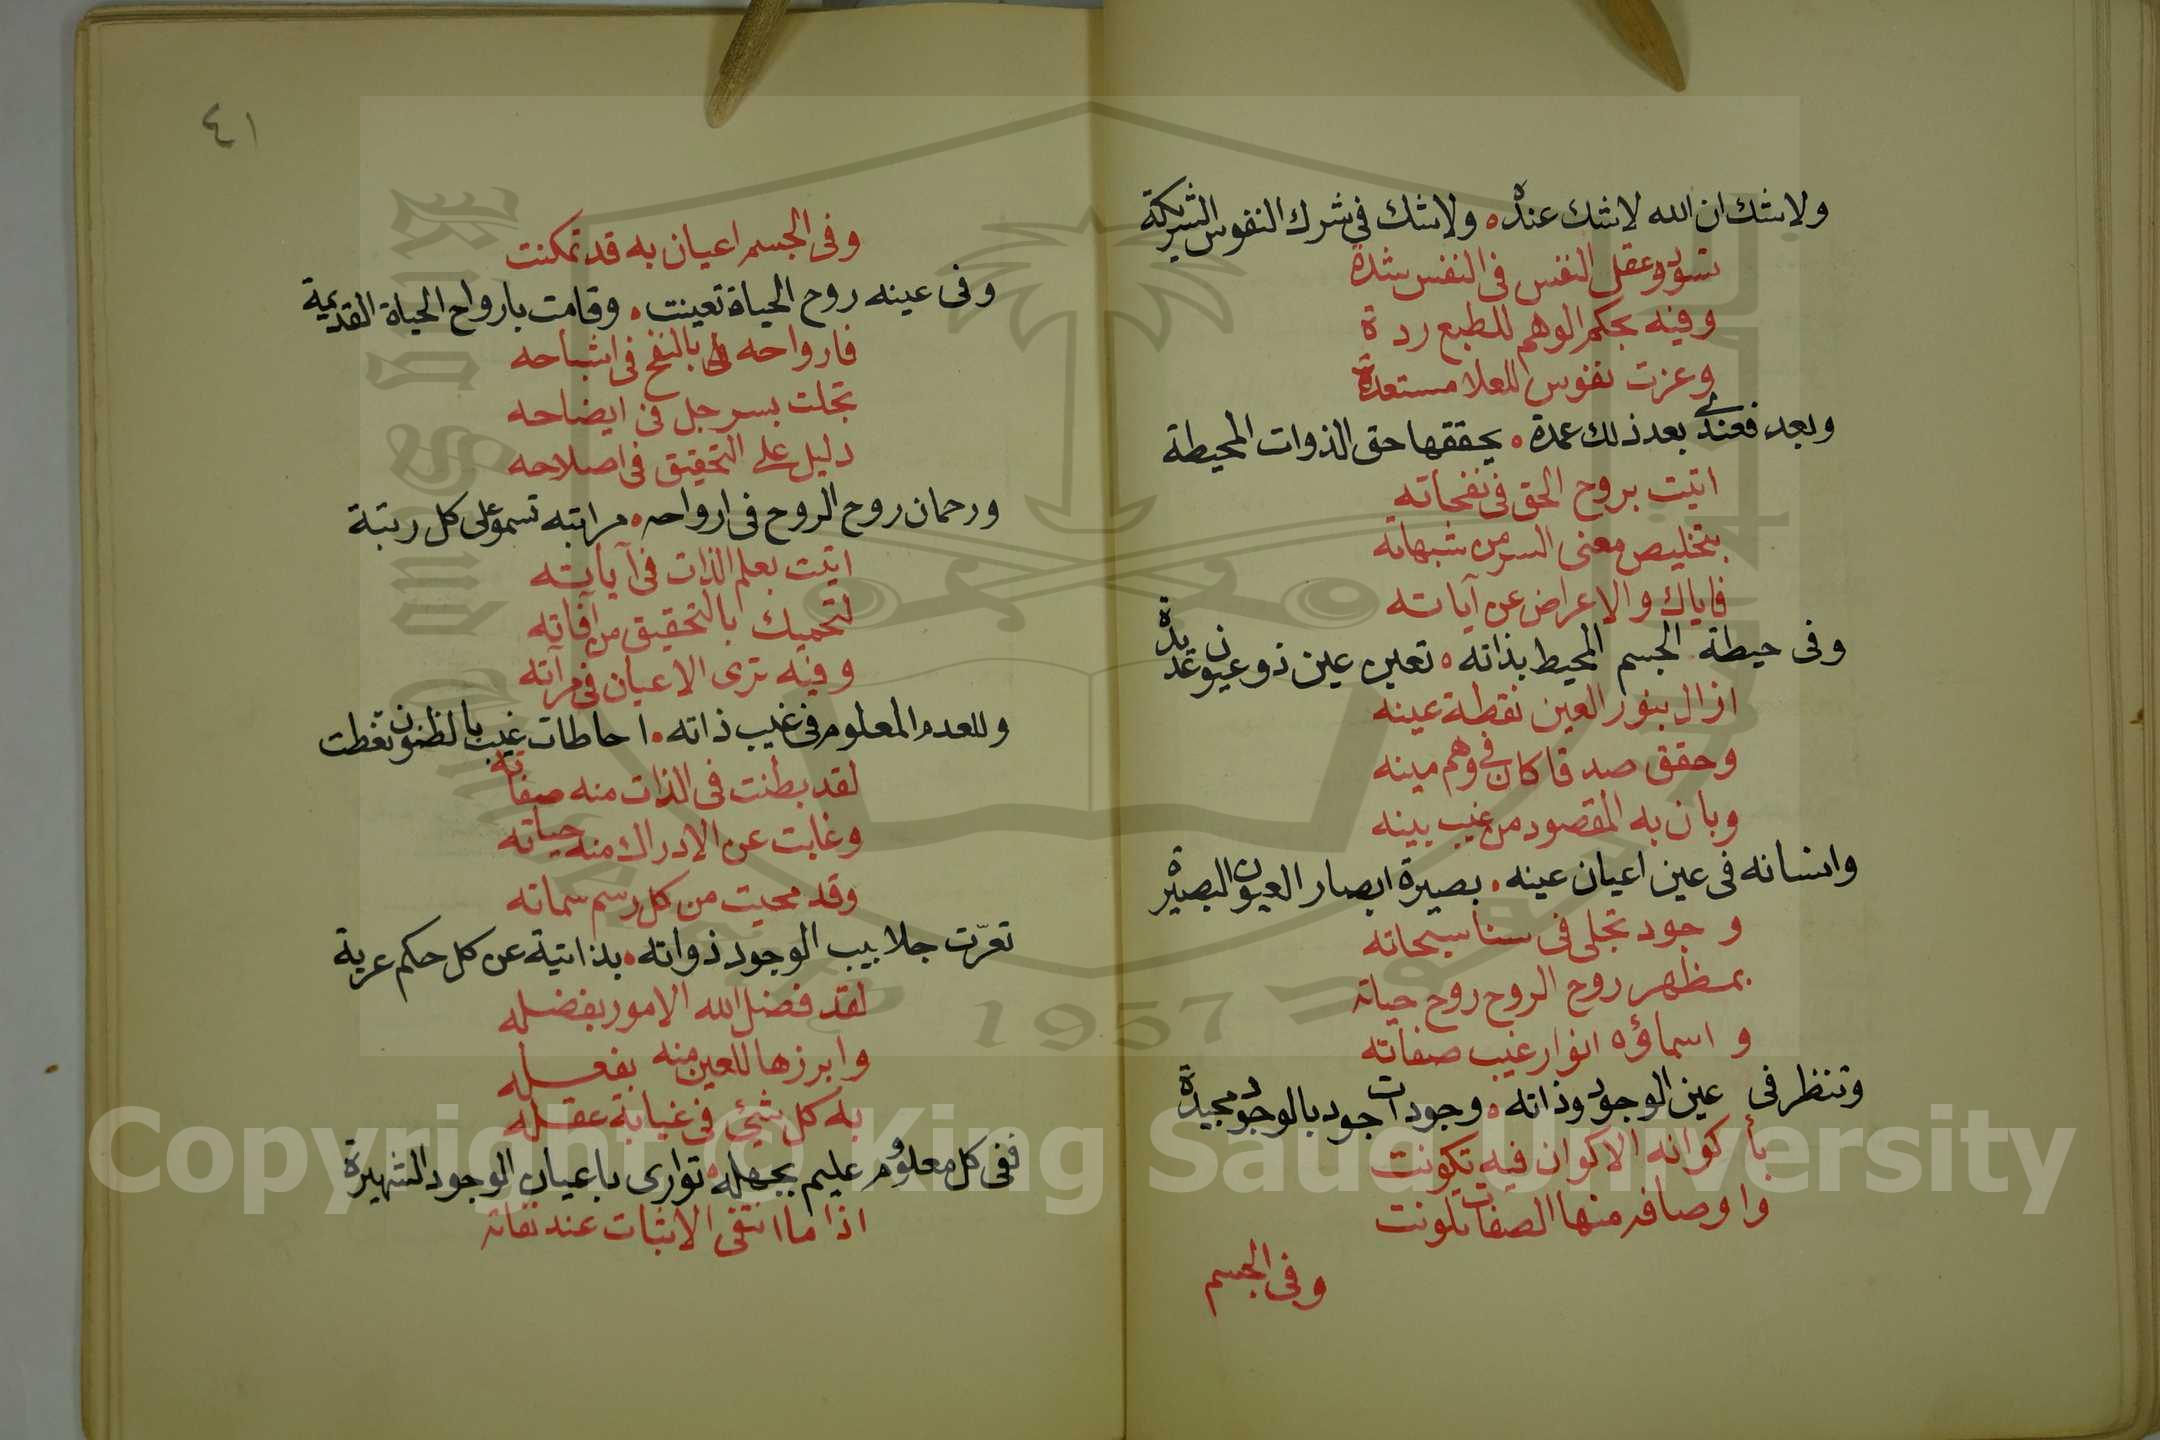 ولا شك ان الله لا شك عنده ولا شك في شرك النفوس الشريكة
تسود وعقل النفس في النفس شدة
وفيه بحكم الوهم للطبع ردة
وعزت نفوس للعلا مستعدة
وبعد فعندي بعد ذلك عمدة يحققها حق الذوات المحيطة
اتيت بروح الحق في نفحاته
بتخليص معنى السر من شبهاته
فاياك والاعراض عن آياته
وفى حيطة الجسم المحيط بذاته تعين عين ذو عيون عديدة
ازال بنور العين نقطة عينه
وحقق صدقا كان في وهم مينه
وبان به المقصود من غيب بينه
وانسانه فى عين اعيان عينه بصيرة ابصار العيون البصيرة
وجود تجلى فى سنا سبحاته
بمظهر روح الروح روح حياته
و اسماؤه انوار غيب صفاته
وتنظر فى عين الوجود وذاته وجودات جود بالوجود مجيدة
بأكوانه الاكوان فيه تكونت
واوصافه منها الصفات تلونت
وفى الجسم
٤١
وفى الجسم اعيان به قد تمكنت
وفى عينه روح الحياة تعينت وقامت بارواح الحياة القديمة
فارواحه بالنفخ فى اشباحه
تجلت بسر جل فى ايضاحه
دليل على التحقيق فى اصلاحه
ورحمان روح الروح فى ارواحه مراتبه تسمو على كل رتبة
اتيت بعلم الذات فى آياته
لتحميك بالتحقيق من آفاته
وفيه ترى الاعيان فى مرآته
وللعدم المعلوم فى غيب ذاته احاطات غيب بالظنون تغطت
لقد بطنت فى الذات منه صفاته
وغابت عن الادراك منه حياته
وقد محيت من كل رسم سماته
تعرّت جلابيب الوجود ذواته بذاتية عن كل حكم عرية
لقد فضل الله الامور بفضله
وابرزها للعين منه بفعله
به كل شيئ فى غيابة عقله
ففى كل معلوم عليم بجهله توارى باعيان الوجود الشهيرة
اذا ما انتفى الاثبات عند نفاته
Copyright © King Saud University
1957